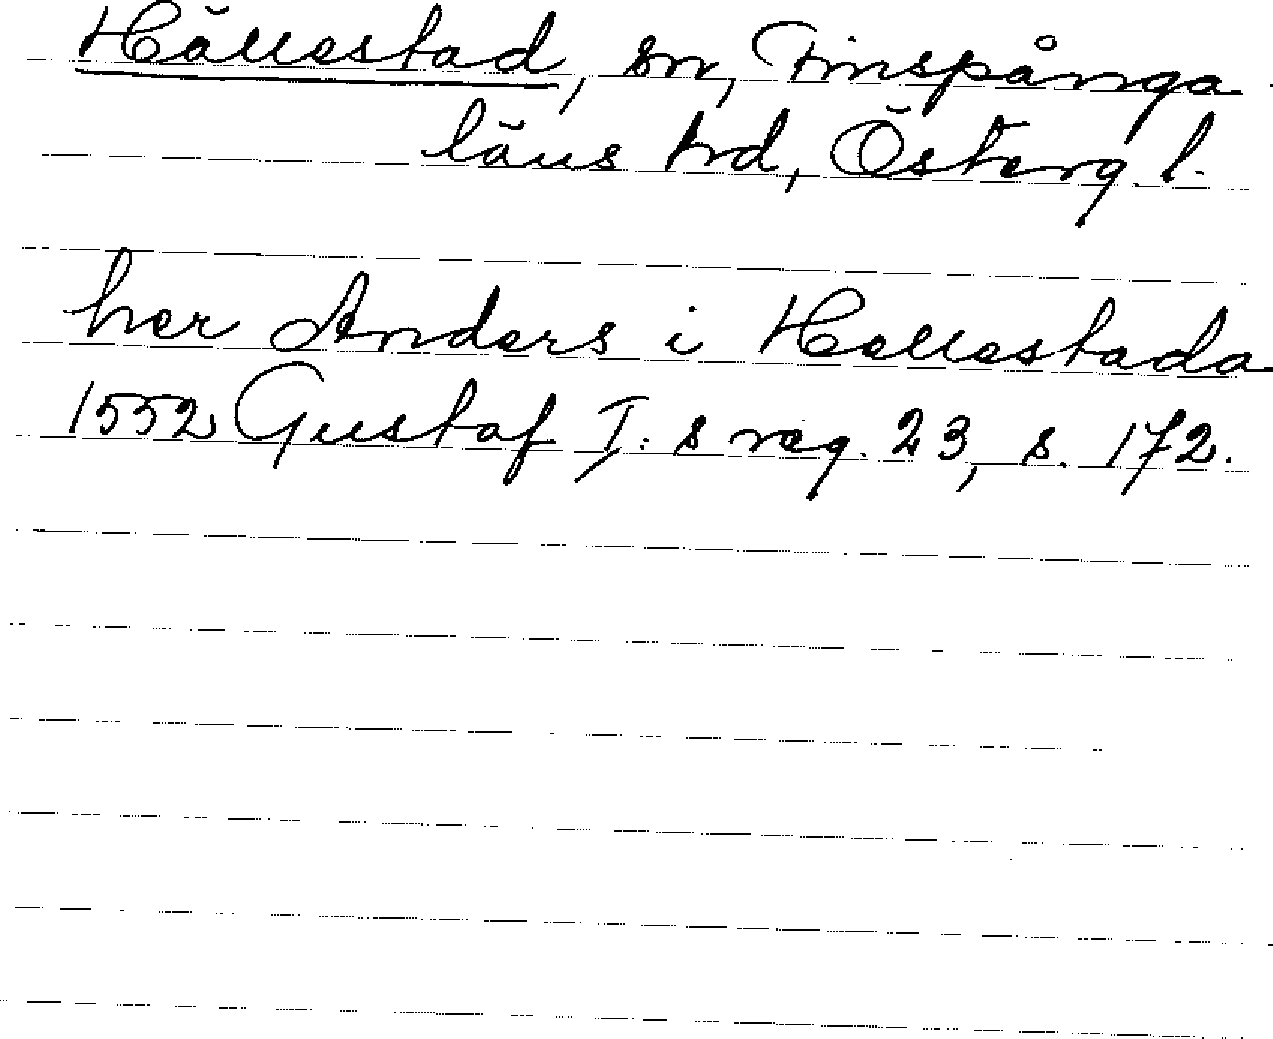 Hällestad, sn, Finspånga
läns hd, Österg. l.
her Anders i Hellestada
1552 Gustaf I:s reg. 23, s. 172.